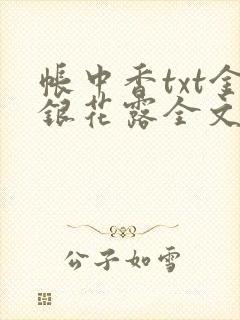 帐中香txt金
银花露全文
公子如雪